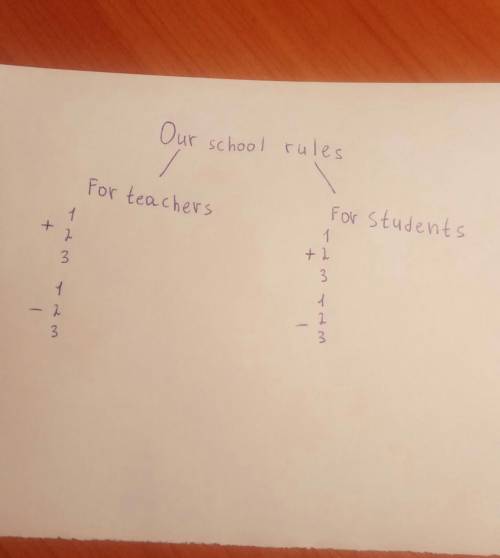 Our school rules
For teachers
+ 1
2
3
- 1
2
3
For students
1
+ 2
3
1
- 2
3